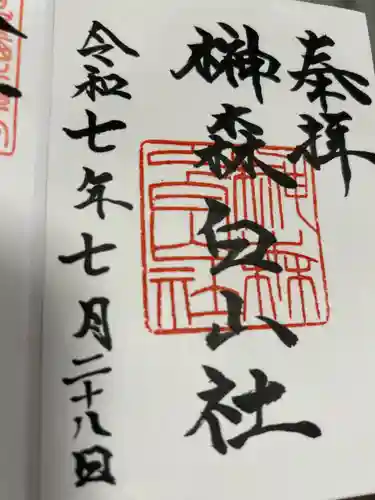 奉拝
榊森白山社
令和七年七月二十八日